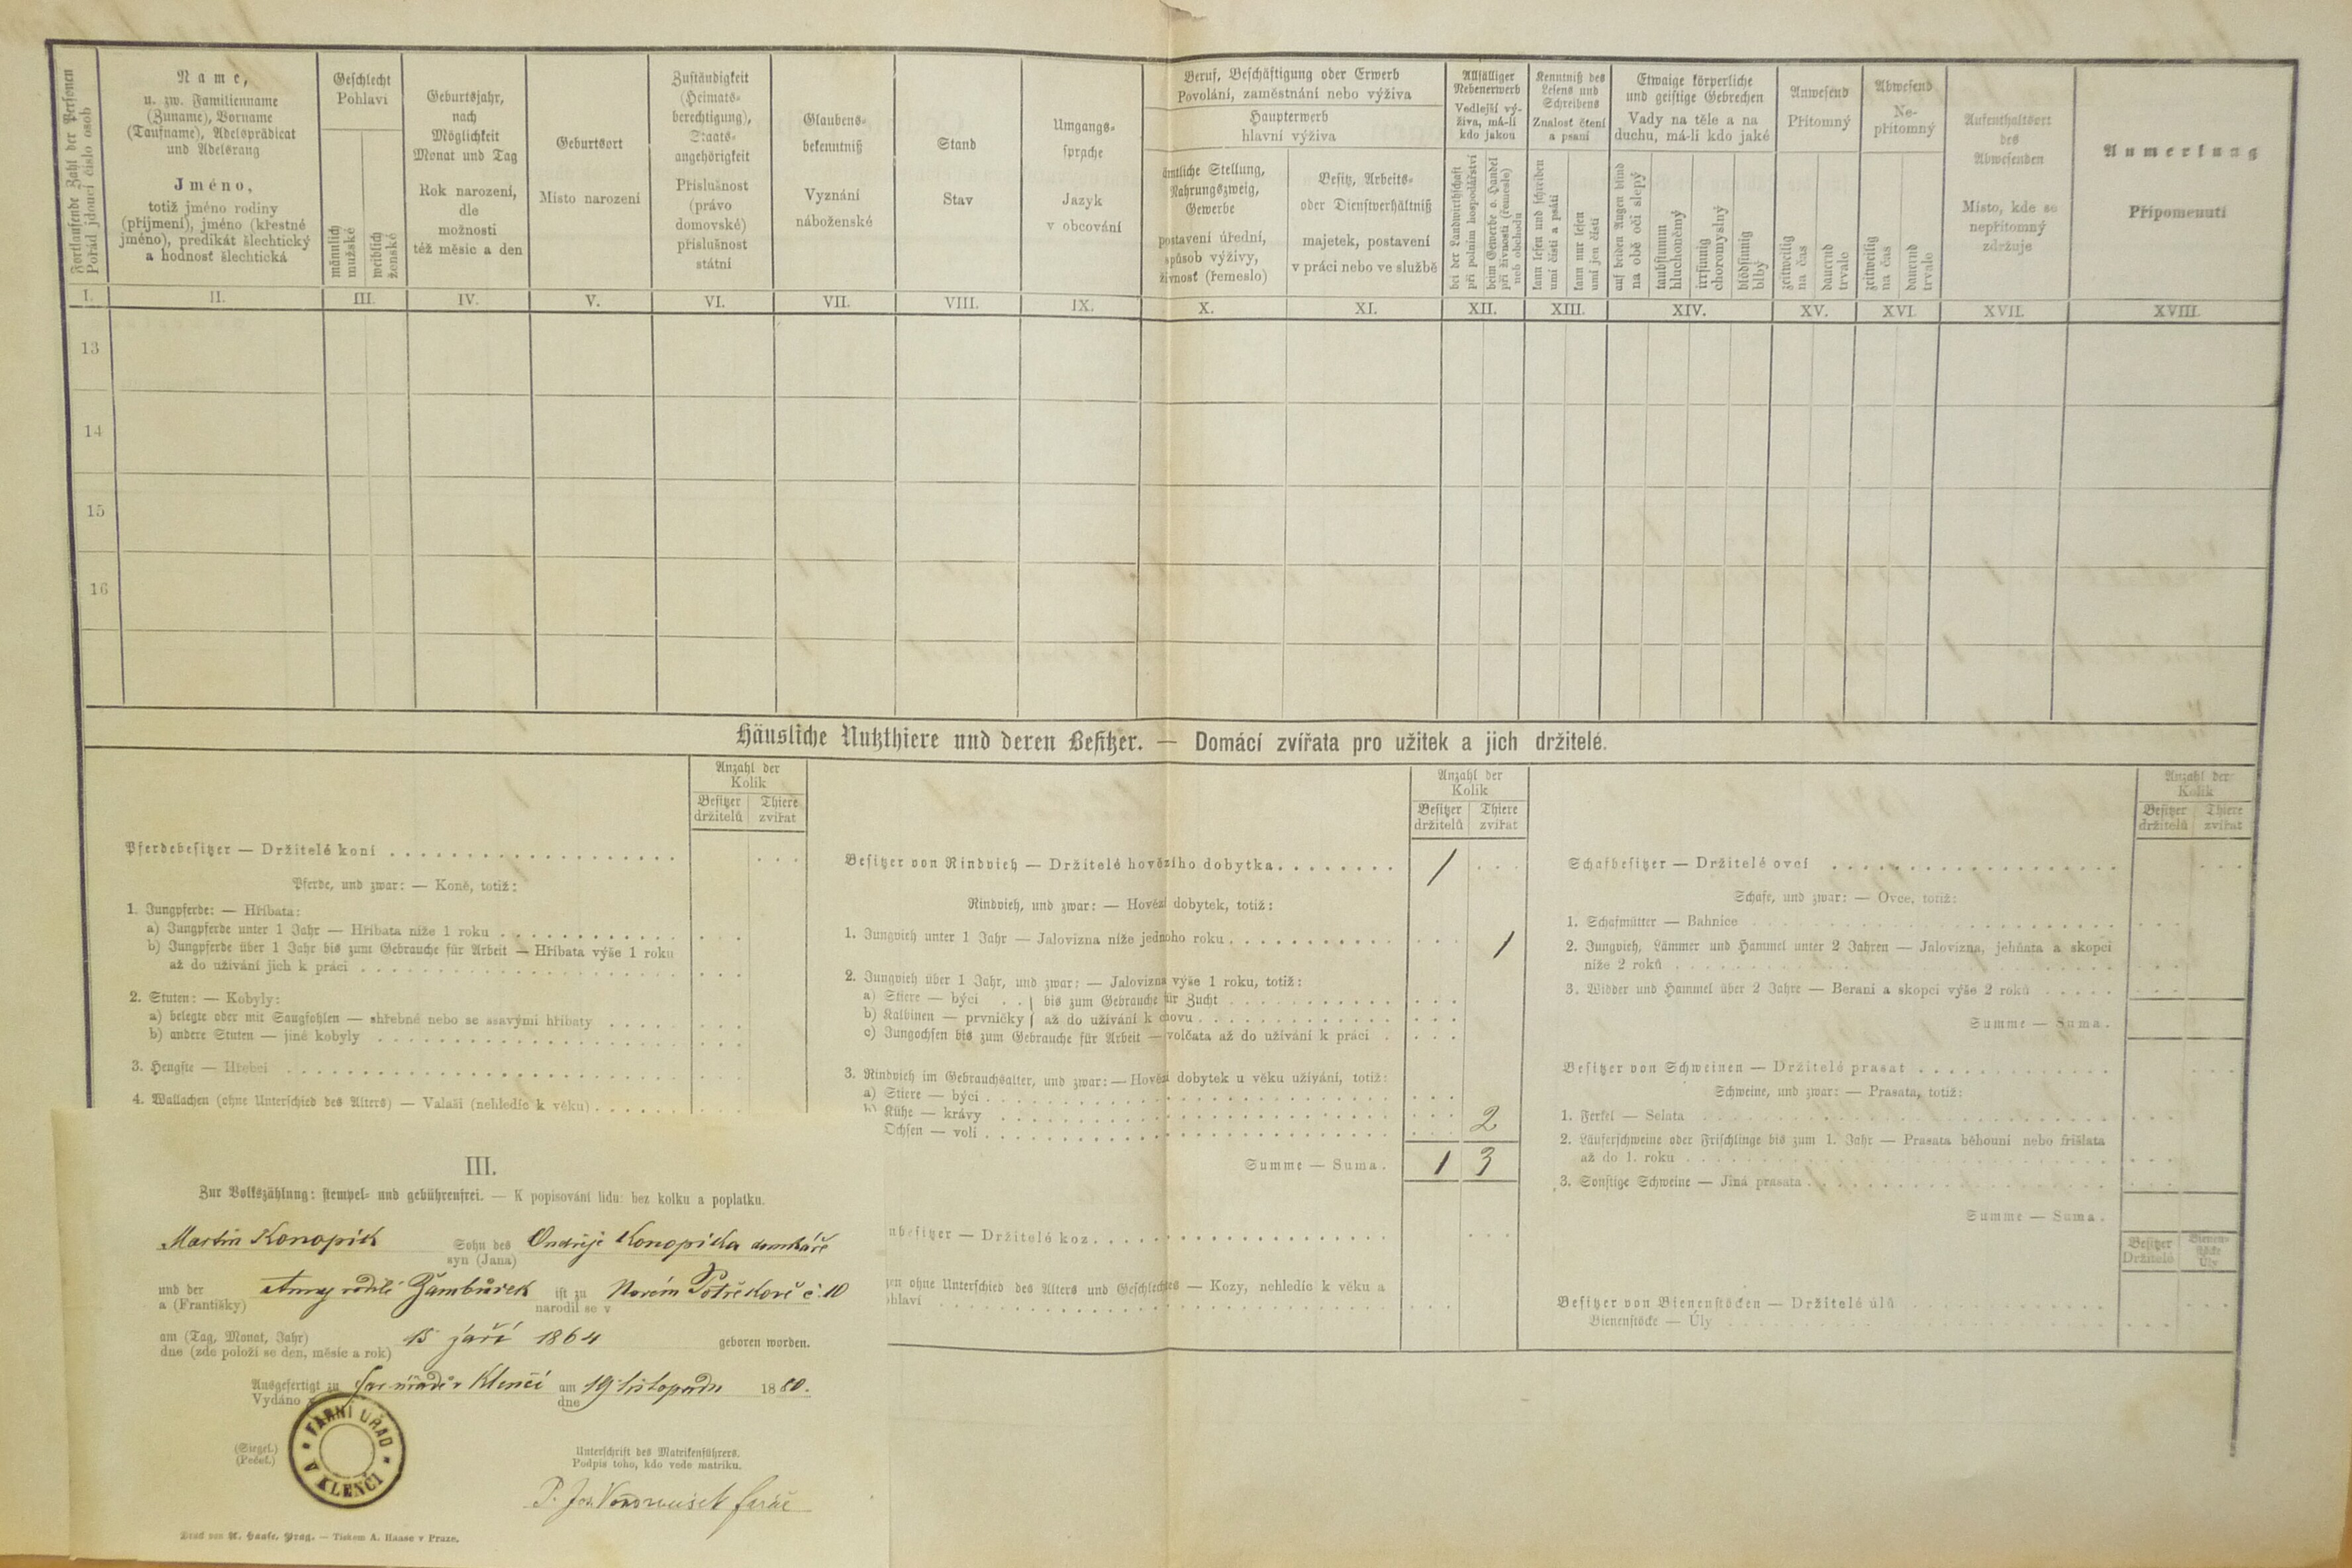 Fortlaufende Zahl der Personen
Pořád jdoucí číslo osob
Name,
u. zw. Familienname
(Zuname), Vorname
(Taufname), Adelsprädicat
und Adelsrang
Jméno,
totiž jméno rodiny
(příjmení), jméno (křestné
jméno), predikát šlechtický
a hodnosť šlechtická
Geschlecht
Pohlaví
männlich
mužské
weiblich
ženské
Geburtsjahr,
nach
Möglichkeit
Monat und Tag
Rok narození,
dle
možnosti
též měsíc a den
Geburtsort
Místo narození
Zuständigkeit
(Heimats-
berechtigung),
Staats-
angehörigkeit
Příslušnost
(právo
domovské)
příslušnost
státní
Glaubens-
bekenntniß
Vyznání
náboženské
Stand
Stav
Umgangs-
sprache
Jazyk
v obcování
Beruf, Beschäftigung oder Erwerb
Povolání, zaměstnání nebo výživa
Haupterwerb
hlavní výživa
ämtliche Stellung,
Nahrungszweig,
Gewerbe
postavení úřední,
spůsob výživy,
živnosť (řemeslo)
Besitz, Arbeits-
oder Dienstverhältniß
majetek, postavení
v práci nebo ve službě
Allfälliger
Nebenerwerb
Vedlejší vý-
živa, má-li
kdo jakou
bei der Landwirthschaft
při polním hospodářství
beim Gewerbe o. Handel
při živnosti (řemesle)
neb obchodu
Kenntniß des
Lesens und
Schreibens
Znalosť čtení
a psaní
kann lesen und schreiben
umí čísti a psáti
kann nur lesen
umí jen čísti
Etwaige körperliche
und geistige Gebrechen
Vady na těle a na
duchu, má-li kdo jaké
auf beiden Augen blind
na obě oči slepý
taubstumm
hluchoněmý
irrsinnig
choromyslný
blödsinnig
blbý
Anwesend
Přítomný
zeitweilig
na čas
dauernd
trvale
Abwesend
Ne-
přítomný
zeitweilig
na čas
dauernd
trvale
Aufenthaltsort
des
Abwesenden
Místo, kde se
nepřítomný
zdržuje
Anmerkung
Připomenutí
I. II. III. IV. V. VI. VII. VIII. IX. X. XI. XII. XIII. XIV. XV. XVI. XVII. XVIII.
13
14
15
16
Häusliche Nutzthiere und deren Besitzer. — Domácí zvířata pro užitek a jich držitelé.
Anzahl der
Kolik
Besitzer Thiere
držitelů zvířat
Pferdebesitzer — Držitelé koní
Pferde, und zwar: — Koně, totiž:
1. Jungpferde: — Hříbata:
a) Jungpferde unter 1 Jahr — Hříbata níže 1 roku
b) Jungpferde über 1 Jahr bis zum Gebrauche für Arbeit — Hříbata výše 1 roku
až do užívání jich k práci
2. Stuten: — Kobyly:
a) belegte oder mit Saugfohlen — shřebné nebo se ssavými hříbaty
b) andere Stuten — jiné kobyly
3. Hengste — Hřebci
4. Wallachen (ohne Unterschied des Alters) — Valaši (nehledíc k věku)
Anzahl der
Kolik
Besitzer Thiere
držitelů zvířat
Besitzer von Rindvieh — Držitelé hovězího dobytka 1
Rindvieh, und zwar: — Hovězí dobytek, totiž:
1. Jungvieh unter 1 Jahr — Jalovizna níže jednoho roku 1
2. Jungvieh über 1 Jahr, und zwar: — Jalovizna výše 1 roku, totiž:
a) Stiere — býci } bis zum Gebrauche für Zucht
b) Kalbinen — prvničky } až do užívání k chovu
c) Jungochsen bis zum Gebrauche für Arbeit — volčata až do užívání k práci
3. Rindvieh im Gebrauchsalter, und zwar: — Hovězí dobytek u věku užívání, totiž:
a) Stiere — býci
b) Kühe — krávy 2
Ochsen — voli
Summe — Suma. 1 3
nbesitzer — Držitelé koz
en ohne Unterschied des Alters und Geschlechtes — Kozy, nehledíc k věku a
ohlaví
Anzahl der
Kolik
Besitzer Thiere
držitelů zvířat
Schafbesitzer — Držitelé ovcí
Schafe, und zwar: — Ovce, totiž:
1. Schafmütter — Bahnice
2. Jungvieh, Lämmer und Hammel unter 2 Jahren — Jalovizna, jehňata a skopci
níže 2 roků
3. Widder und Hammel über 2 Jahre — Berani a skopci výše 2 roků
Summe — Suma.
Besitzer von Schweinen — Držitelé prasat
Schweine, und zwar: — Prasata, totiž:
1. Ferkel — Selata
2. Läuferschweine oder Frischlinge bis zum 1. Jahr — Prasata běhouni nebo frišlata
až do 1. roku
3. Sonstige Schweine — Jiná prasata
Summe — Suma.
Besitzer Bienen-
stöcke
Držitelé Úly
Besitzer von Bienenstöcken — Držitelé úlů
Bienenstöcke — Úly
III.
Zur Volkszählung: stempel- und gebührenfrei. — K popisování lidu: bez kolku a poplatku.
Martin Konopík Sohn des Ondřeje Konopíka domkáře
syn (Jana)
und der Anny rodilé Žambůrek ist zu Novém Postřekově č. 10
a (Františky) narodil se v
am (Tag, Monat, Jahr) 15 září 1864 geboren worden.
dne (zde položí se den, měsíc a rok)
Ausgefertigt zu Far. úřadě v Klenčí am 19 listopadu 1880.
Vydáno v dne
FARNÍ ÚŘAD
V KLENČÍ
(Siegel.)
(Pečeť.)
Unterschrift des Matrikenführers.
Podpis toho, kdo vede matriku.
P. Jos. farář
Druck von A. Haase, Prag. — Tiskem A. Haase v Praze.